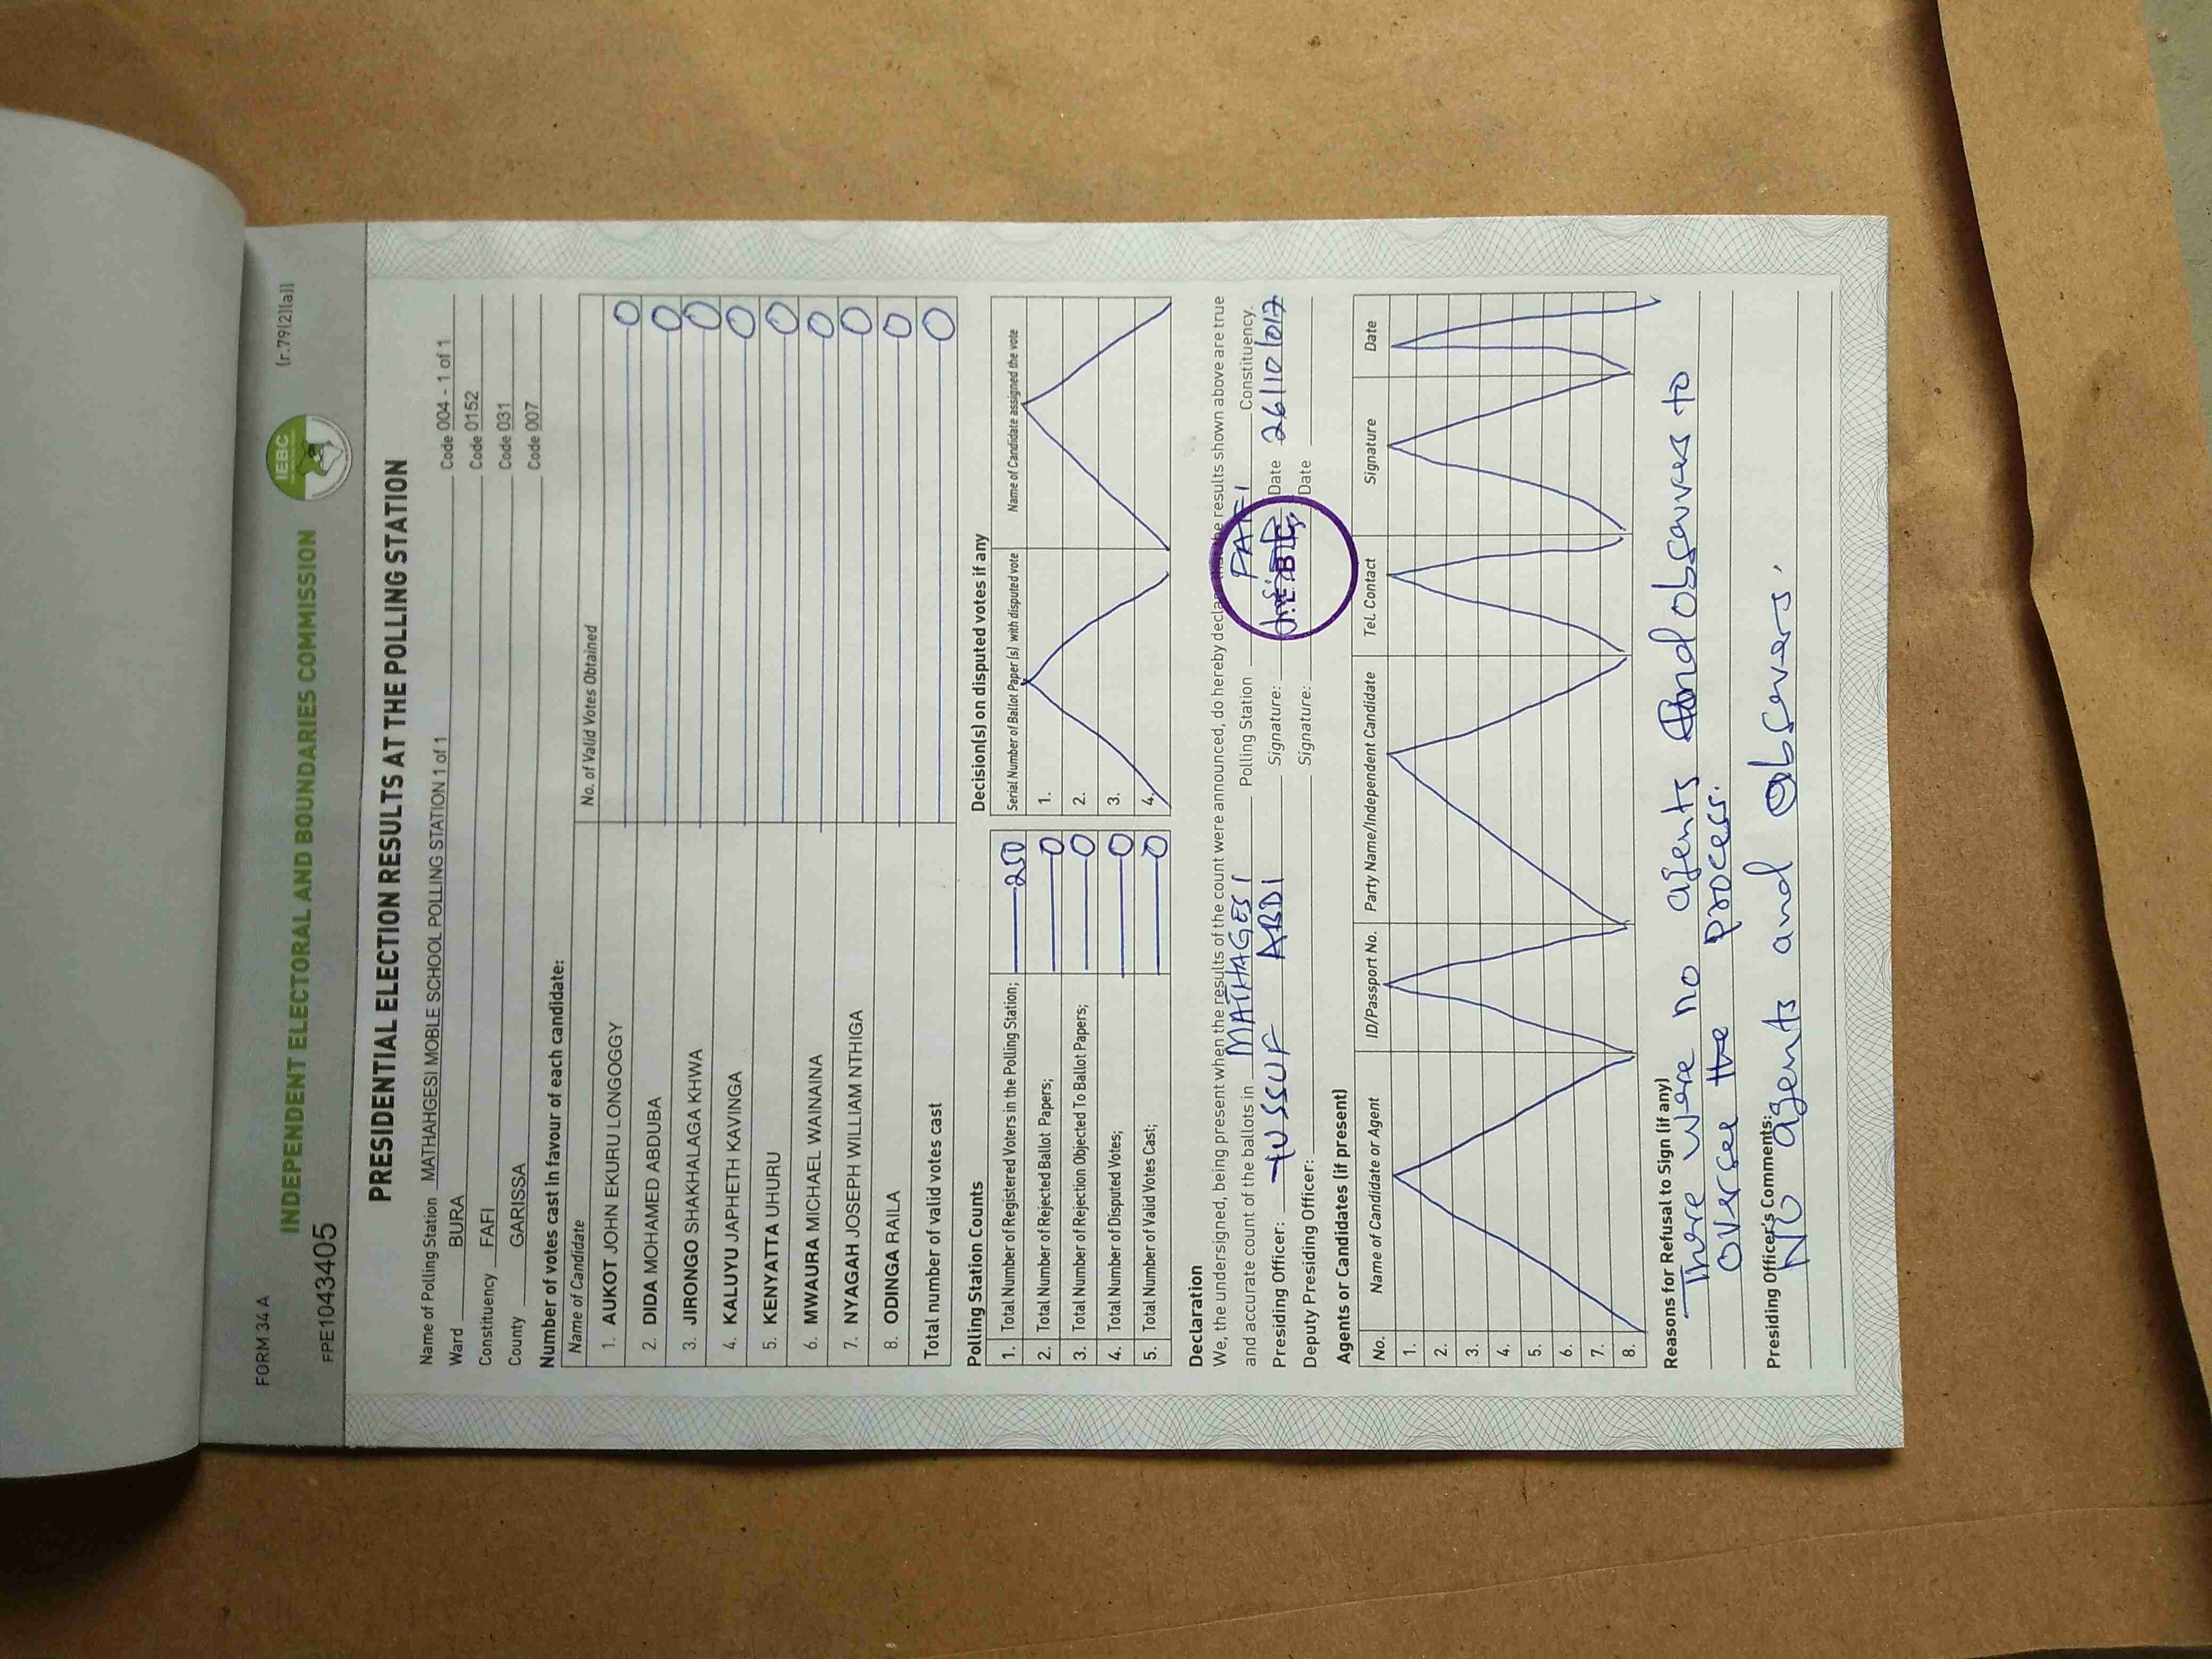 FORM 34 A
(r.79(2)(a))
IEBC
INDEPENDENT ELECTORAL AND BOUNDARIES COMMISSION
FPE1043405
PRESIDENTIAL ELECTION RESULTS AT THE POLLING STATION
Name of Polling Station MATHAHGESI MOBLE SCHOOL POLLING STATION 1 of 1 Code 004 - 1 of 1
Ward BURA Code 0152
Constituency FAFI Code 031
County GARISSA Code 007
Number of votes cast in favour of each candidate:
Name of Candidate No. of Valid Votes Obtained
1. AUKOT JOHN EKURU LONGOGGY 0
2. DIDA MOHAMED ABDUBA 0
3. JIRONGO SHAKHALAGA KHWA 0
4. KALUYU JAPHETH KAVINGA 0
5. KENYATTA UHURU 0
6. MWAURA MICHAEL WAINAINA 0
7. NYAGAH JOSEPH WILLIAM NTHIGA 0
8. ODINGA RAILA 0
Total number of valid votes cast 0
Polling Station Counts
1. Total Number of Registered Voters in the Polling Station; 250
2. Total Number of Rejected Ballot Papers; 0
3. Total Number of Rejection Objected To Ballot Papers; 0
4. Total Number of Disputed Votes; 0
5. Total Number of Valid Votes Cast; 0
Decision(s) on disputed votes if any
Serial Number of Ballot Paper (s) with disputed vote Name of Candidate assigned the vote
1.
2.
3.
4.
Declaration
We, the undersigned, being present when the results of the count were announced, do hereby declare that the results shown above are true
and accurate count of the ballots in MATHAGESI Polling Station FAFI Constituency.
Presiding Officer: YUSSUF ABDI Signature: I.E.B.C Date 26/10/017
Deputy Presiding Officer: Signature: Date
Agents or Candidates (if present)
No. Name of Candidate or Agent ID/Passport No. Party Name/Independent Candidate Tel. Contact Signature Date
1.
2.
3.
4.
5.
6.
7.
8.
Reasons for Refusal to Sign (if any)
There were no agents And observers to
oversee the process.
Presiding Officer's Comments:
NO agents and observers.